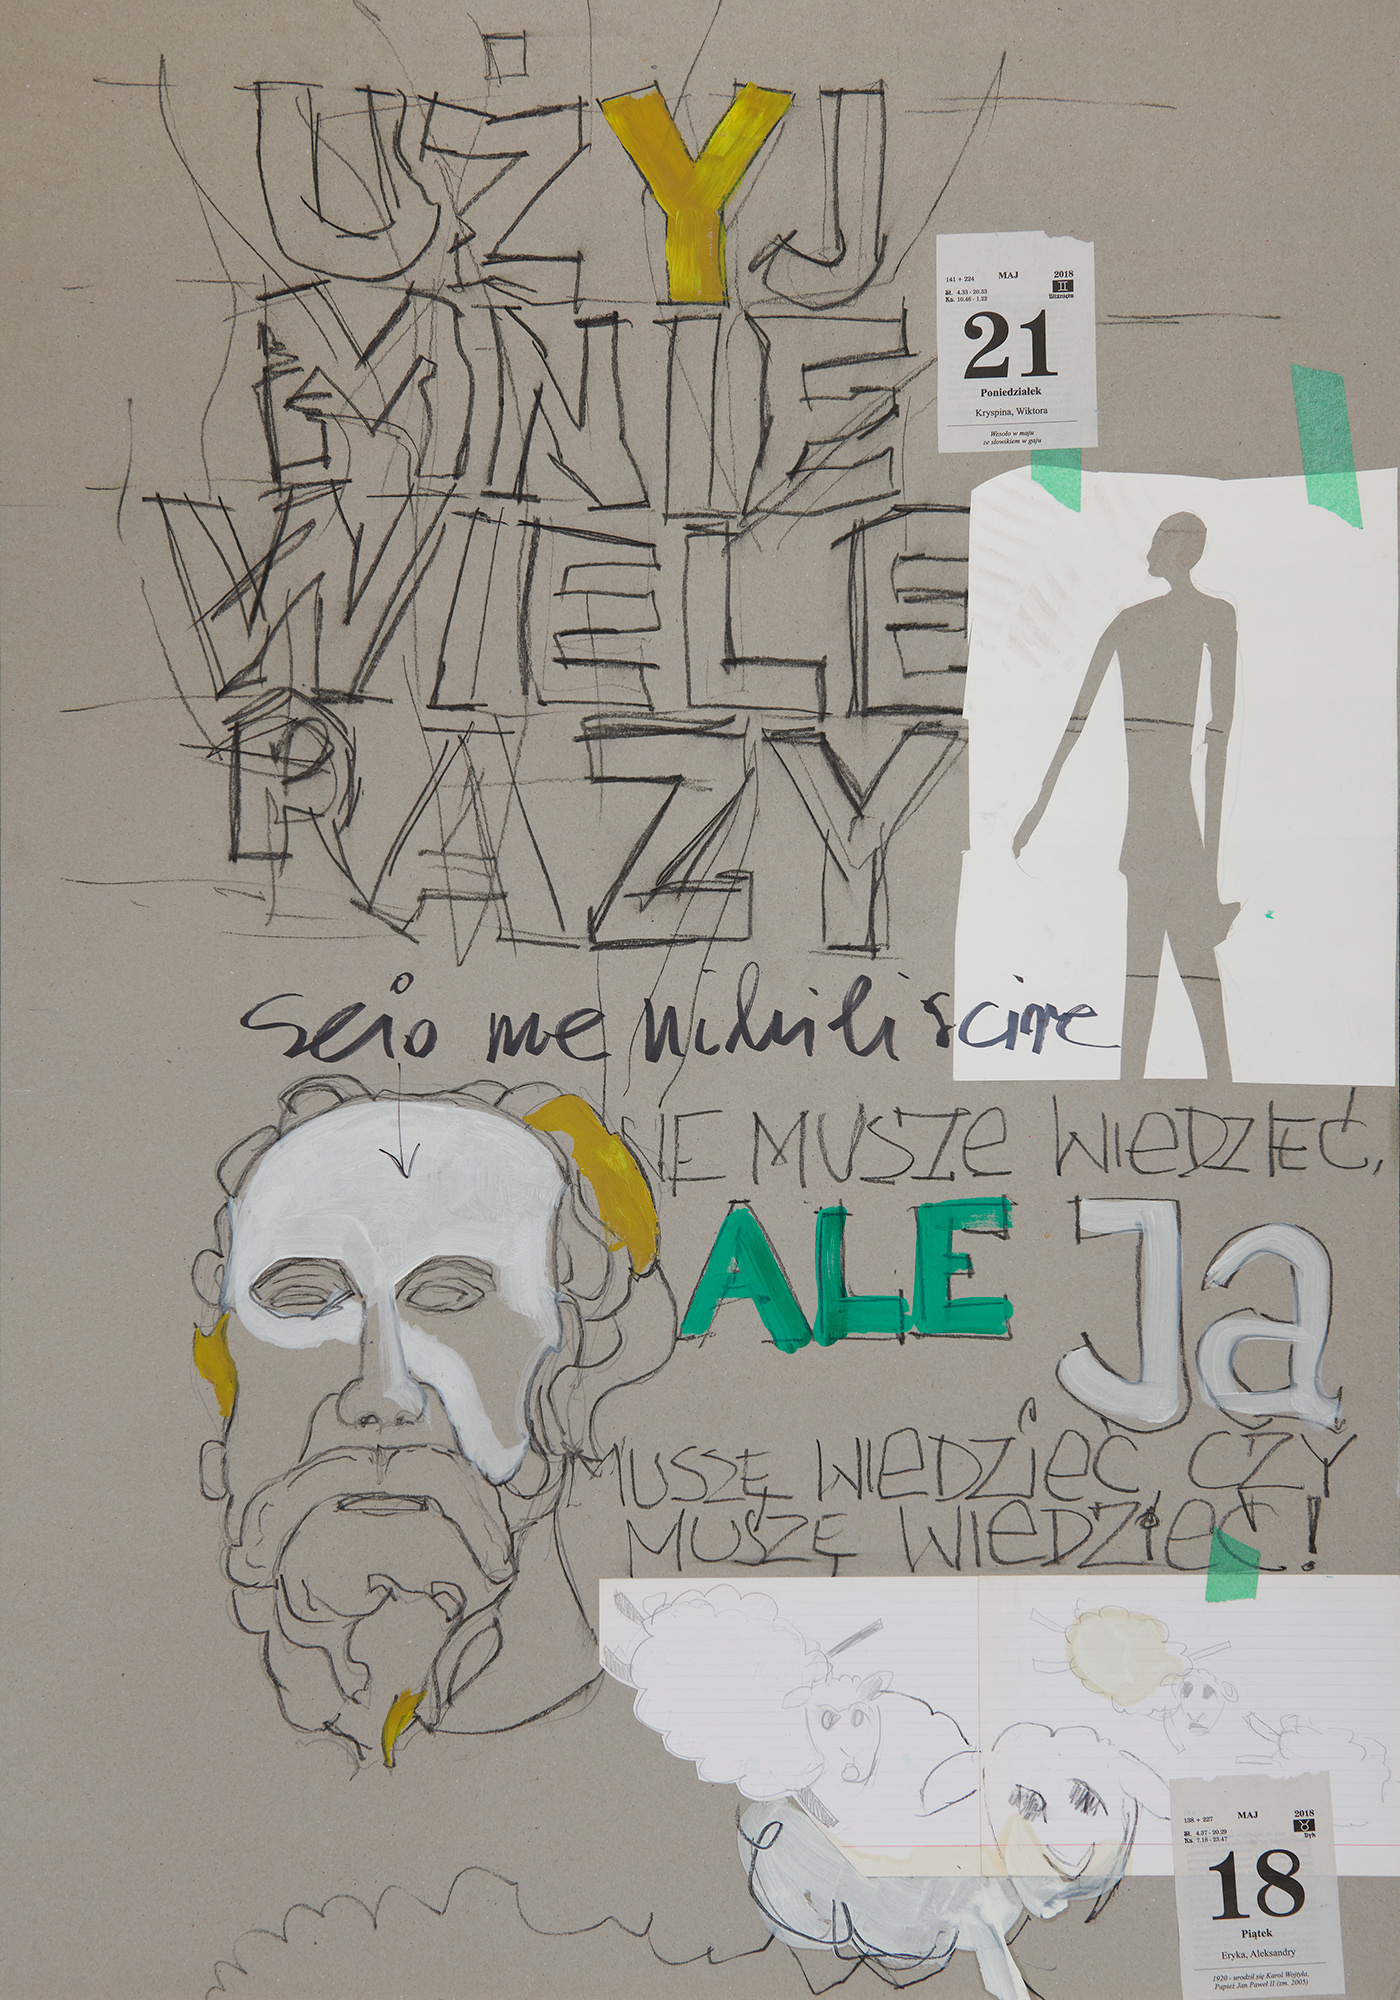 UŻYJ
MNIE
WIELE
RAZY
141 + 224 MAJ 2018
Sł. 4.33 - 20.33
Ks. 10.46 - 1.22
Bliźnięta
21
Poniedziałek
Kryspina, Wiktora
Wesoło w maju
ze słowikiem w gaju
scio me nihili scire
NIE MUSZE WIEDZIEĆ,
ALE Ja
MUSZĘ WIEDZIEĆ, CZY
MUSZĘ WIEDZIEĆ!
138 + 227 MAJ 2018
Sł. 4.37 - 20.29
Ks. 7.18 - 23.47
Byk
18
Piątek
Eryka, Aleksandry
1920 - urodził się Karol Wojtyła,
Papież Jan Paweł II (zm. 2005)